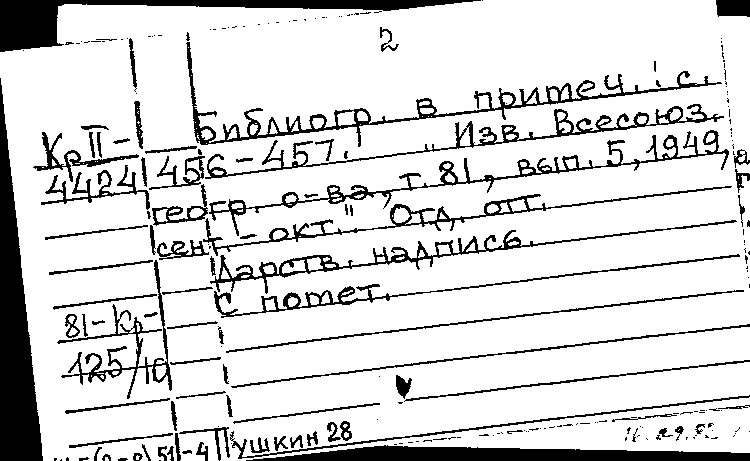 2
Библиогр. в примеч.: с.
Кр II-
4424 456-457. "Изв. Всесоюз.
геогр. о-ва, т. 81, вып. 5, 1949,
сент.-окт." Отд. отт.
Дарств. надпись.
С помет.
81-Кр-
125/10
51-4 Пушкин 28